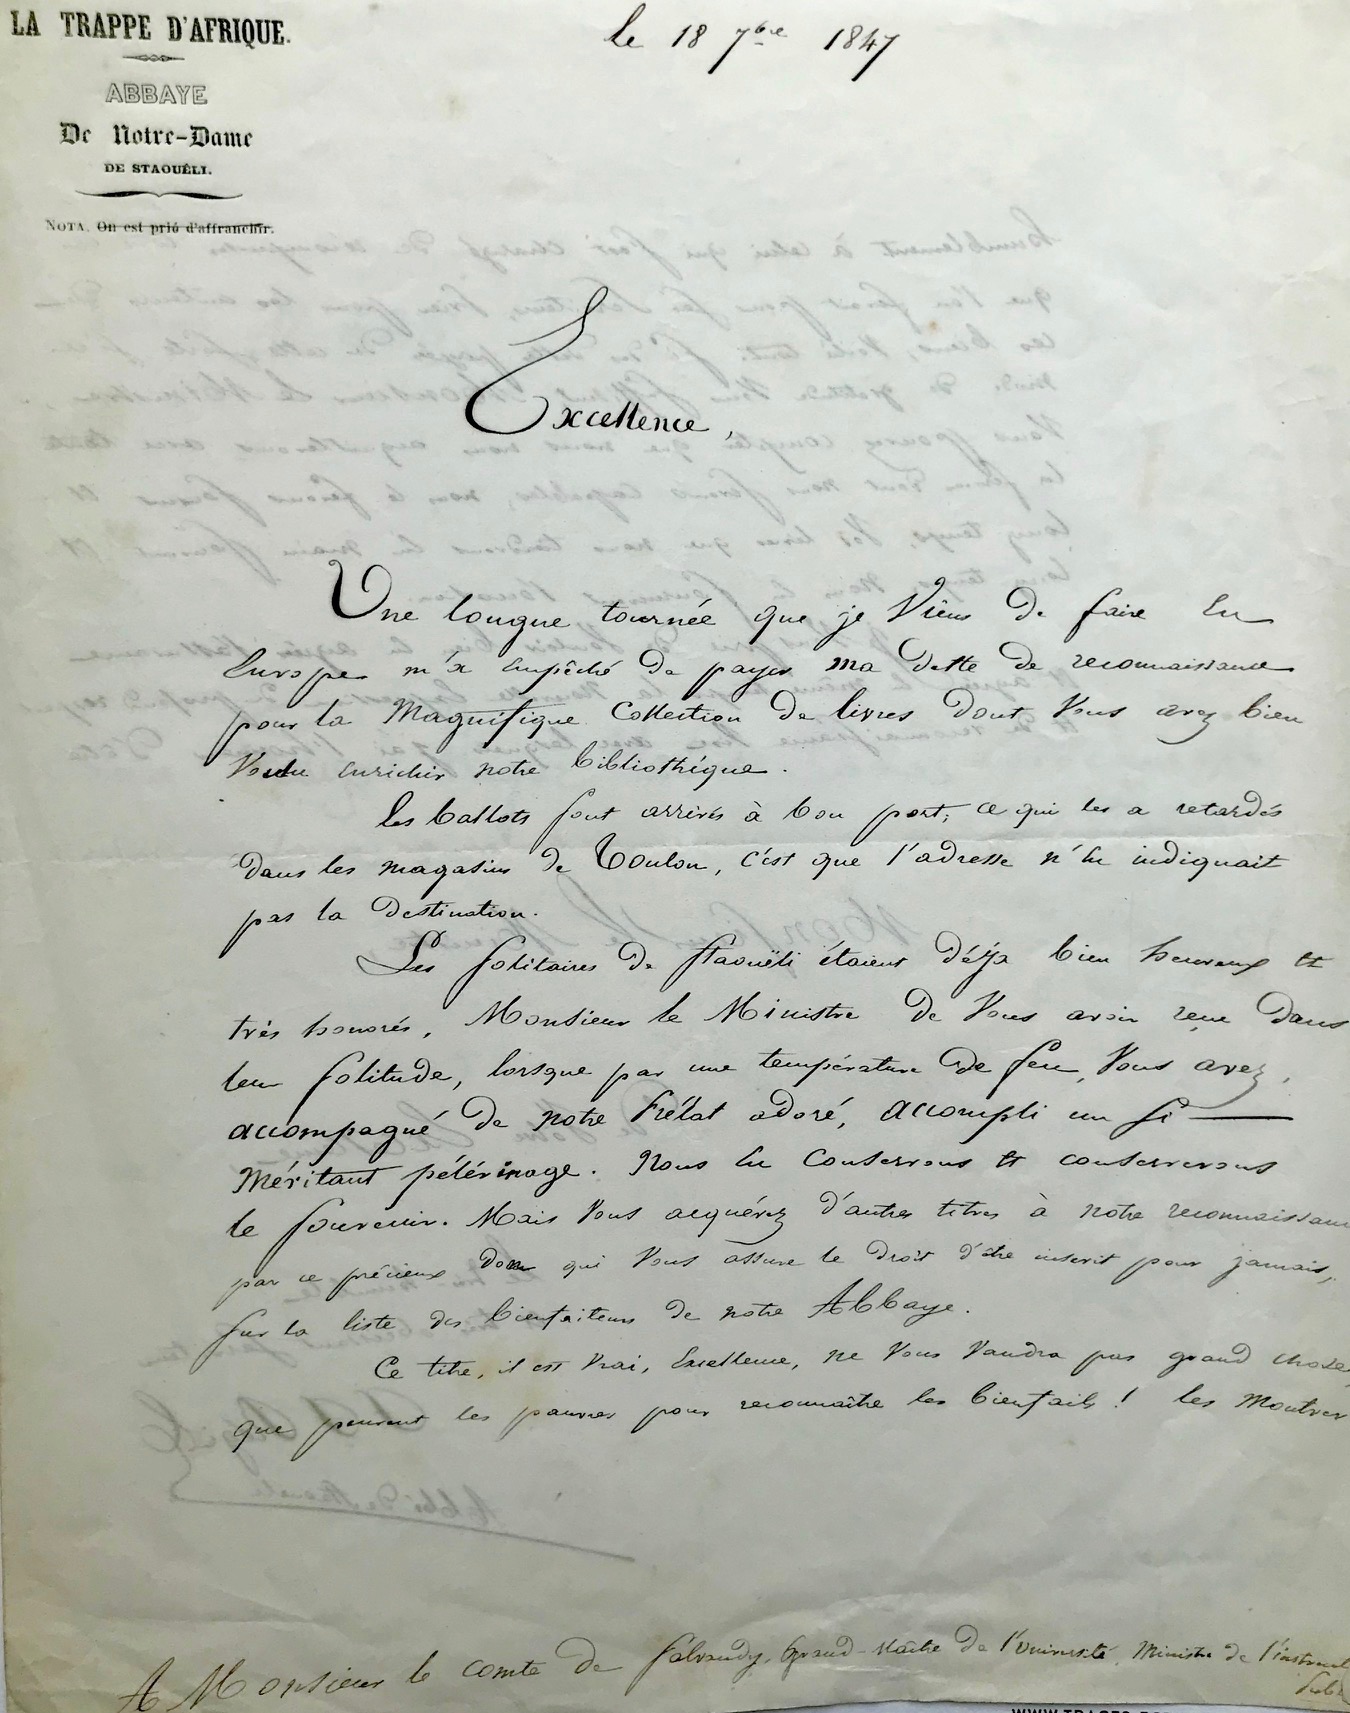 LA TRAPPE D'AFRIQUE.
le 18 7bre 1847
ABBAYE
De Notre-Dame
DE STAOUËLI.
NOTA. On est prié d'affranchir.
Excellence,
Une longue tournée que je Viens de faire En
Europe m'a Empêché de payer ma dette de reconnaissance
pour la Magnifique Collection de livres dont Vous avez bien
Voulu Enrichir notre bibliothéque.
les ballots sont arrivés à bon port; ce qui les a retardés
dans les magasins de Toulon, c'est que l'adresse n'En indiquait
pas la Destination.
Les solitaires de Staouëli étaient déja bien heureux et
très honorés, Monsieur le Ministre de Vous avoir reçu dans
leur solitude, lorsque par une température de feu, Vous avez,
accompagné de notre Prélat adoré, accompli un si
Méritant pélérinage. Nous En Conservons et conserverons
le souvenir. Mais Vous acquérez d'autres titres à notre reconnaissan
par ce précieux don qui Vous assure le droit d'être inscrit pour jamais,
sur la liste des bienfaiteurs de notre Abbaye.
Ce titre, il est Vrai, Excellence, ne Vous Vaudra pas grand chose,
que peuvent les pauvres pour reconnaître les bienfaits! les Montrer
A Monsieur le comte de Salvandy, Grand-Maître de l'Université, Ministre de l'instruct
WWW.TRACES-